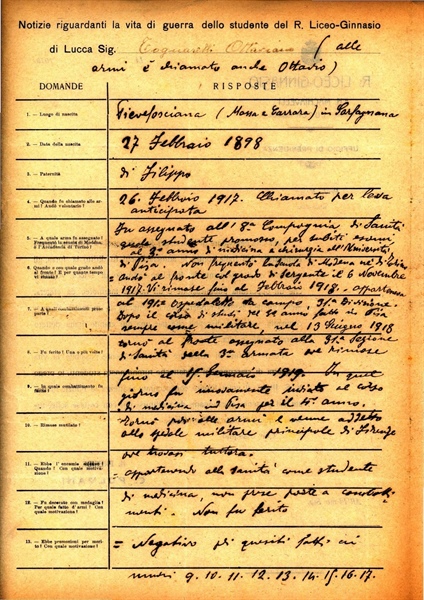 Notizie riguardanti la vita di guerra dello studente del R. Liceo-Ginnasio
di Lucca Sig. Togneretti Ottaviano (alle
armi è chiamato anche Ottavio)
DOMANDE
RISPOSTE
1. - Luogo di nascita
Pievefosciana (Massa e Carrara) in Garfagnana
2. - Data della nascita
27 Febbraio 1898
3. - Paternità
di Filippo
4. - Quando fu chiamato alle armi? Andò volontario?
26 Febbraio 1917. Chiamato per leva
anticipata
5. - A quale arma fu assegnato? Frequentò la scuola di Modena, o l'Accademia di Torino?
Fu assegnato all' 8ª Compagnia di Sanità
quale studente promosso, per subiti esami
al 2º anno di medicina e chirurgia all'Università
di Pisa. Non frequentò scuola di Modena nè di
6. - Quando e con quale grado andò al fronte? E per quanto tempo vi rimase?
Andò al fronte col grado di Sergente il 6 Novembre
1917. Vi rimase fino al Febbraio 1918. - appartenne
7. - A quali combattimenti prese parte?
al 191º Ospedaletto da campo, Divisione.
Dopo il corso di studi del anno fatto in Pisa
sempre come militare, nel 13 Giugno 1918
8. - Fu ferito? Una o più volte?
tornò al fronte assegnato alla 31ª Sezione
di Sanità della 3ª armata ove rimase
9. - In quale combattimento fu ferito?
fino al 15 Gennaio 1919. In quel
giorno fu nuovamente inviato al corso
di medicina in Pisa per il anno.
10. - Rimase mutilato?
Tornò poi alle armi e venne addetto
allo spedale militare principale di Firenze
ove trovasi tuttora.
11. - Ebbe l'encomio solenne? Quando? Con quale motivazione?
= appartenendo alla Sanità come studente
12. - Fu decorato con medaglia? Per quale fatto d'armi? Con quale motivazione?
di medicina, non prese parte a combatti-
menti. Non fu ferito
13. - Ebbe promozioni per merito? Con quale motivazione?
= Negativo pei quesiti fatti ai
numeri 9. 10. 11. 12. 13. 14. 15. 16. 17.